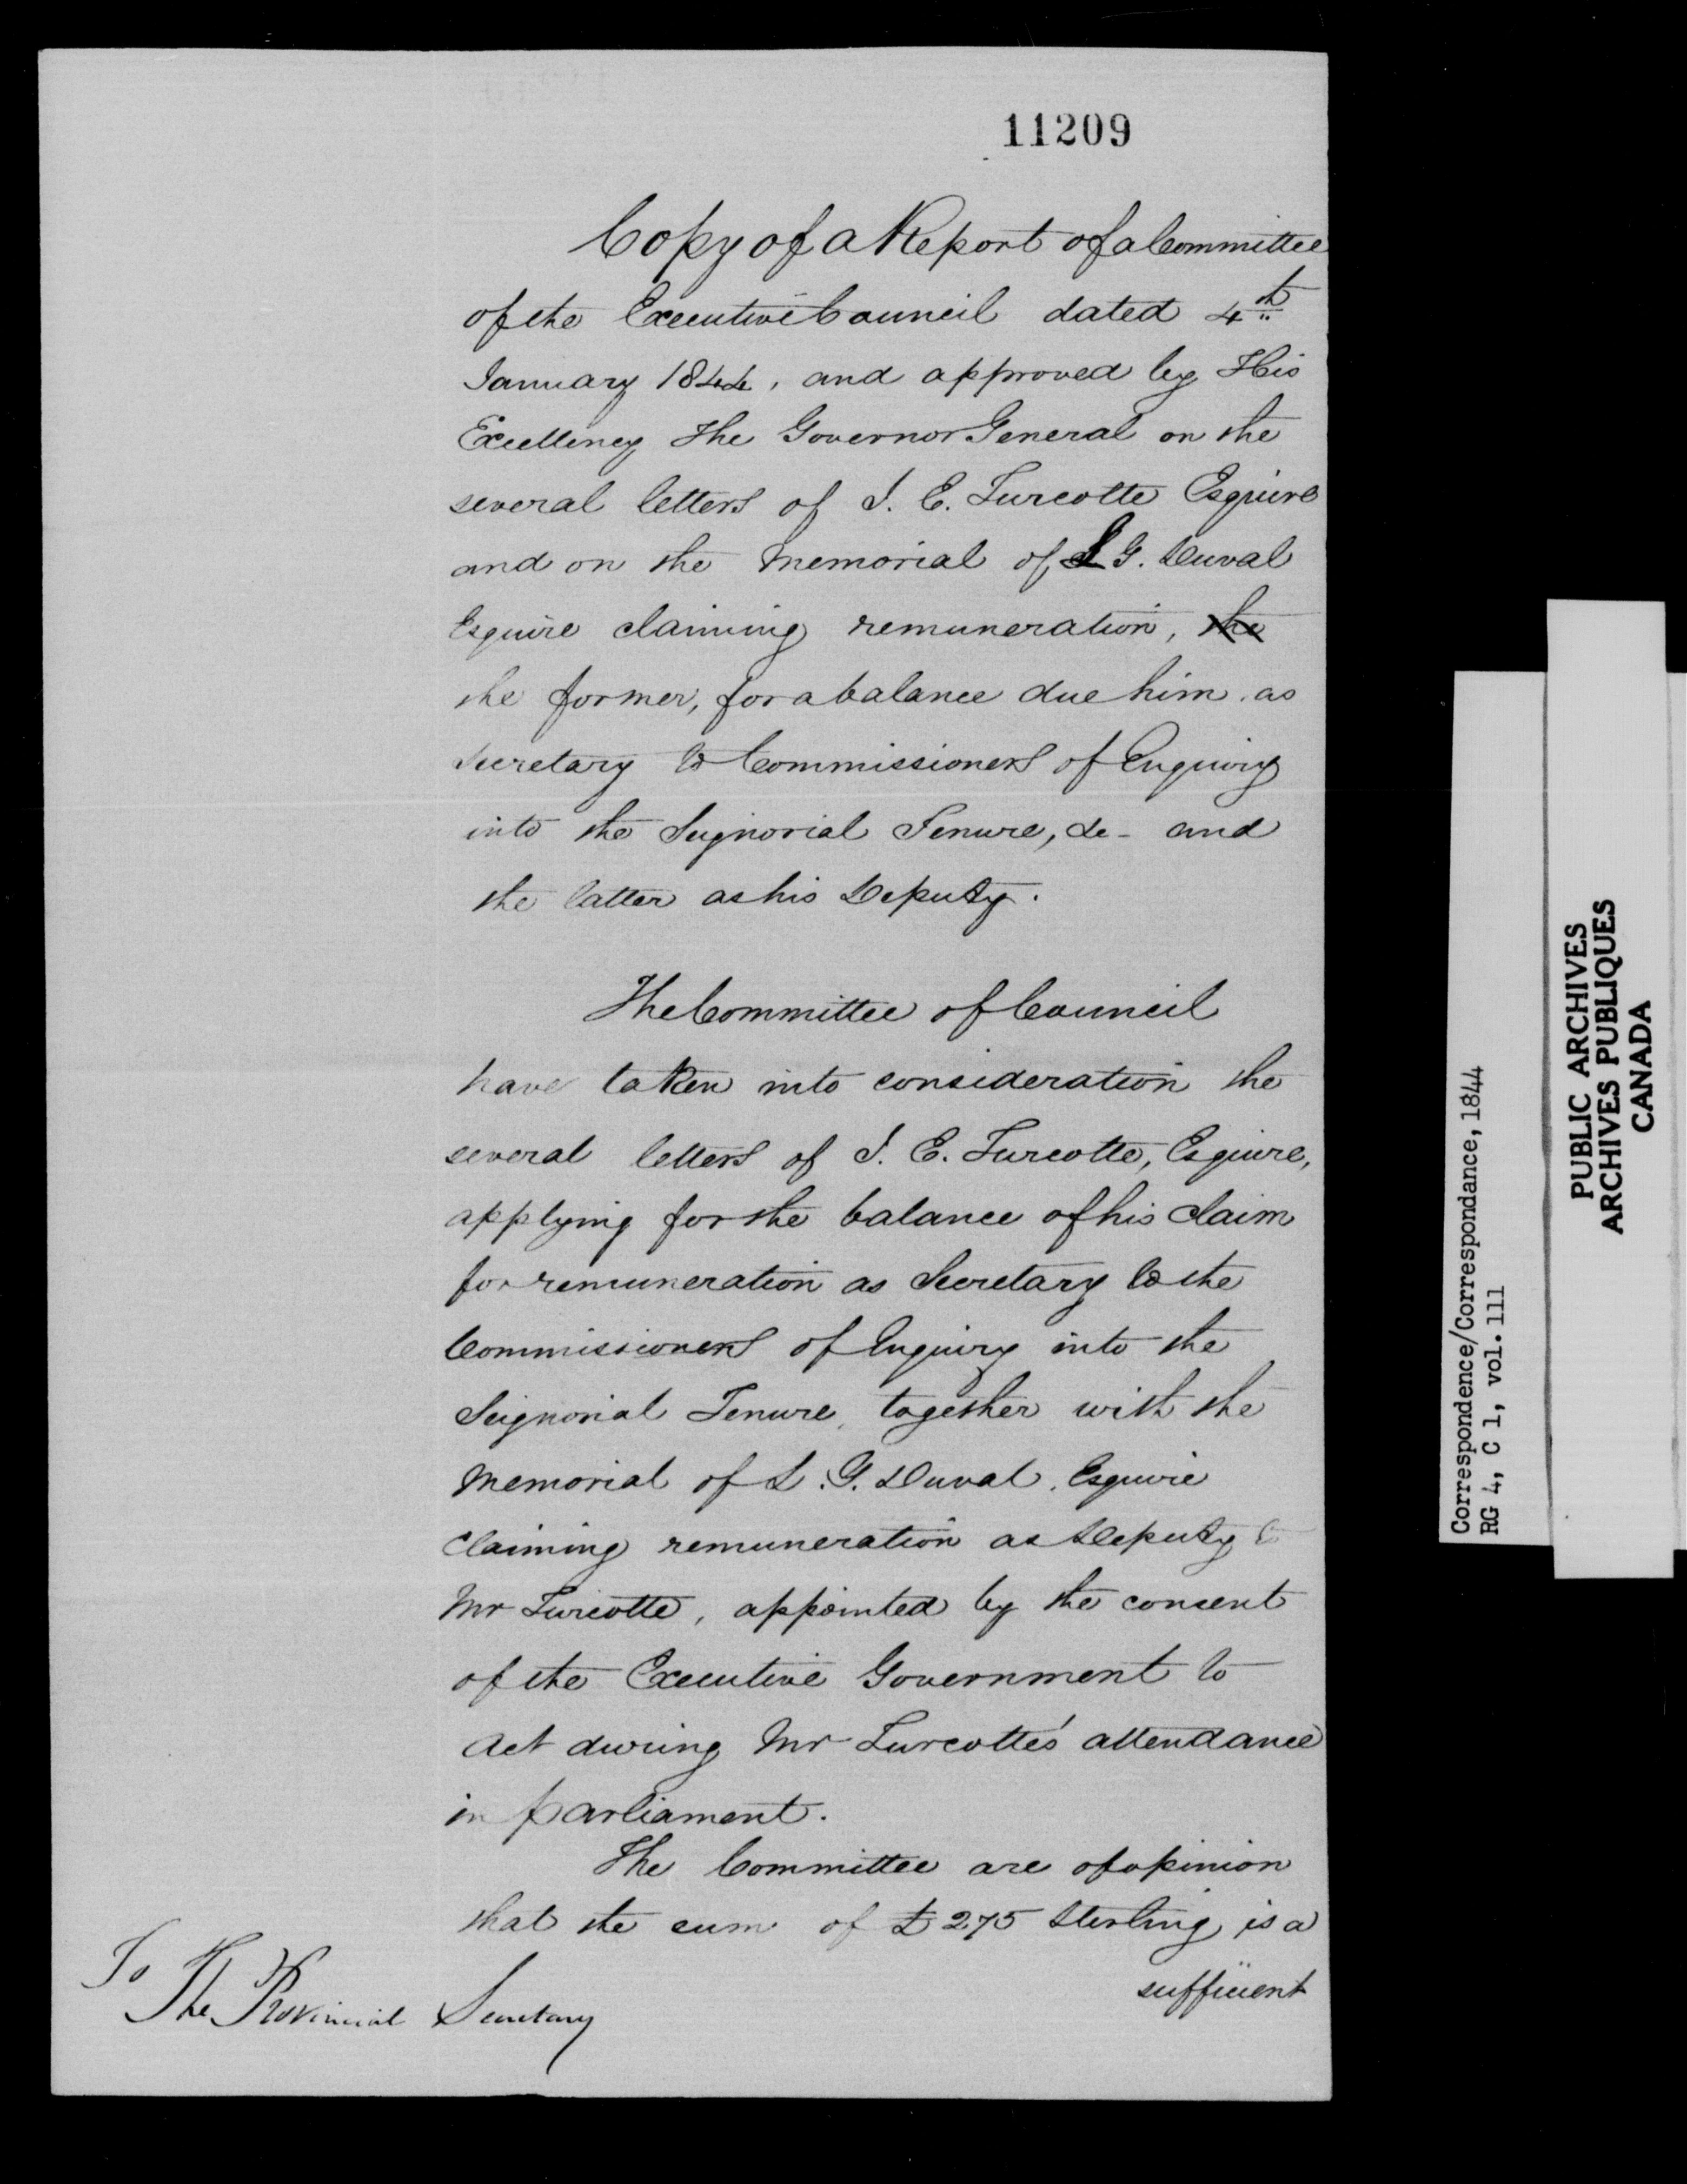 11209
Copy of a Report of a Committee
of the Executive Council dated 4th
January 1844, and approved by His
Excellency The Governor General on the
several letters of J. E. Turcotte Esquire
and on the Memorial of L G. Duval
Esquire claiming remuneration, the
the former, for a balance due him as
Secretary to Commissioners of Enquiry
into the Seignorial Tenure, &c - and
the latter as his Deputy.
The Committee of Council
have taken into consideration the
several letters of J. E. Turcotte, Esquire,
applying for the balance of his claim
for remuneration as Secretary to the
Commissioners of Enquiry into the
Seignorial Tenure, together with the
Memorial of L. G. Duval, Esquire
claiming remuneration as Deputy to
Mr Turcotte, appointed by the consent
of the Executive Government to
act during Mr Turcotte's attendance
in Parliament.
The Committee are of opinion
that the sum of £275 Sterling is a
sufficient
To
The Provincial Secretary
Correspondence/Correspondance, 1844
RG 4, C 1, vol. 111
PUBLIC ARCHIVES
ARCHIVES PUBLIQUES
CANADA